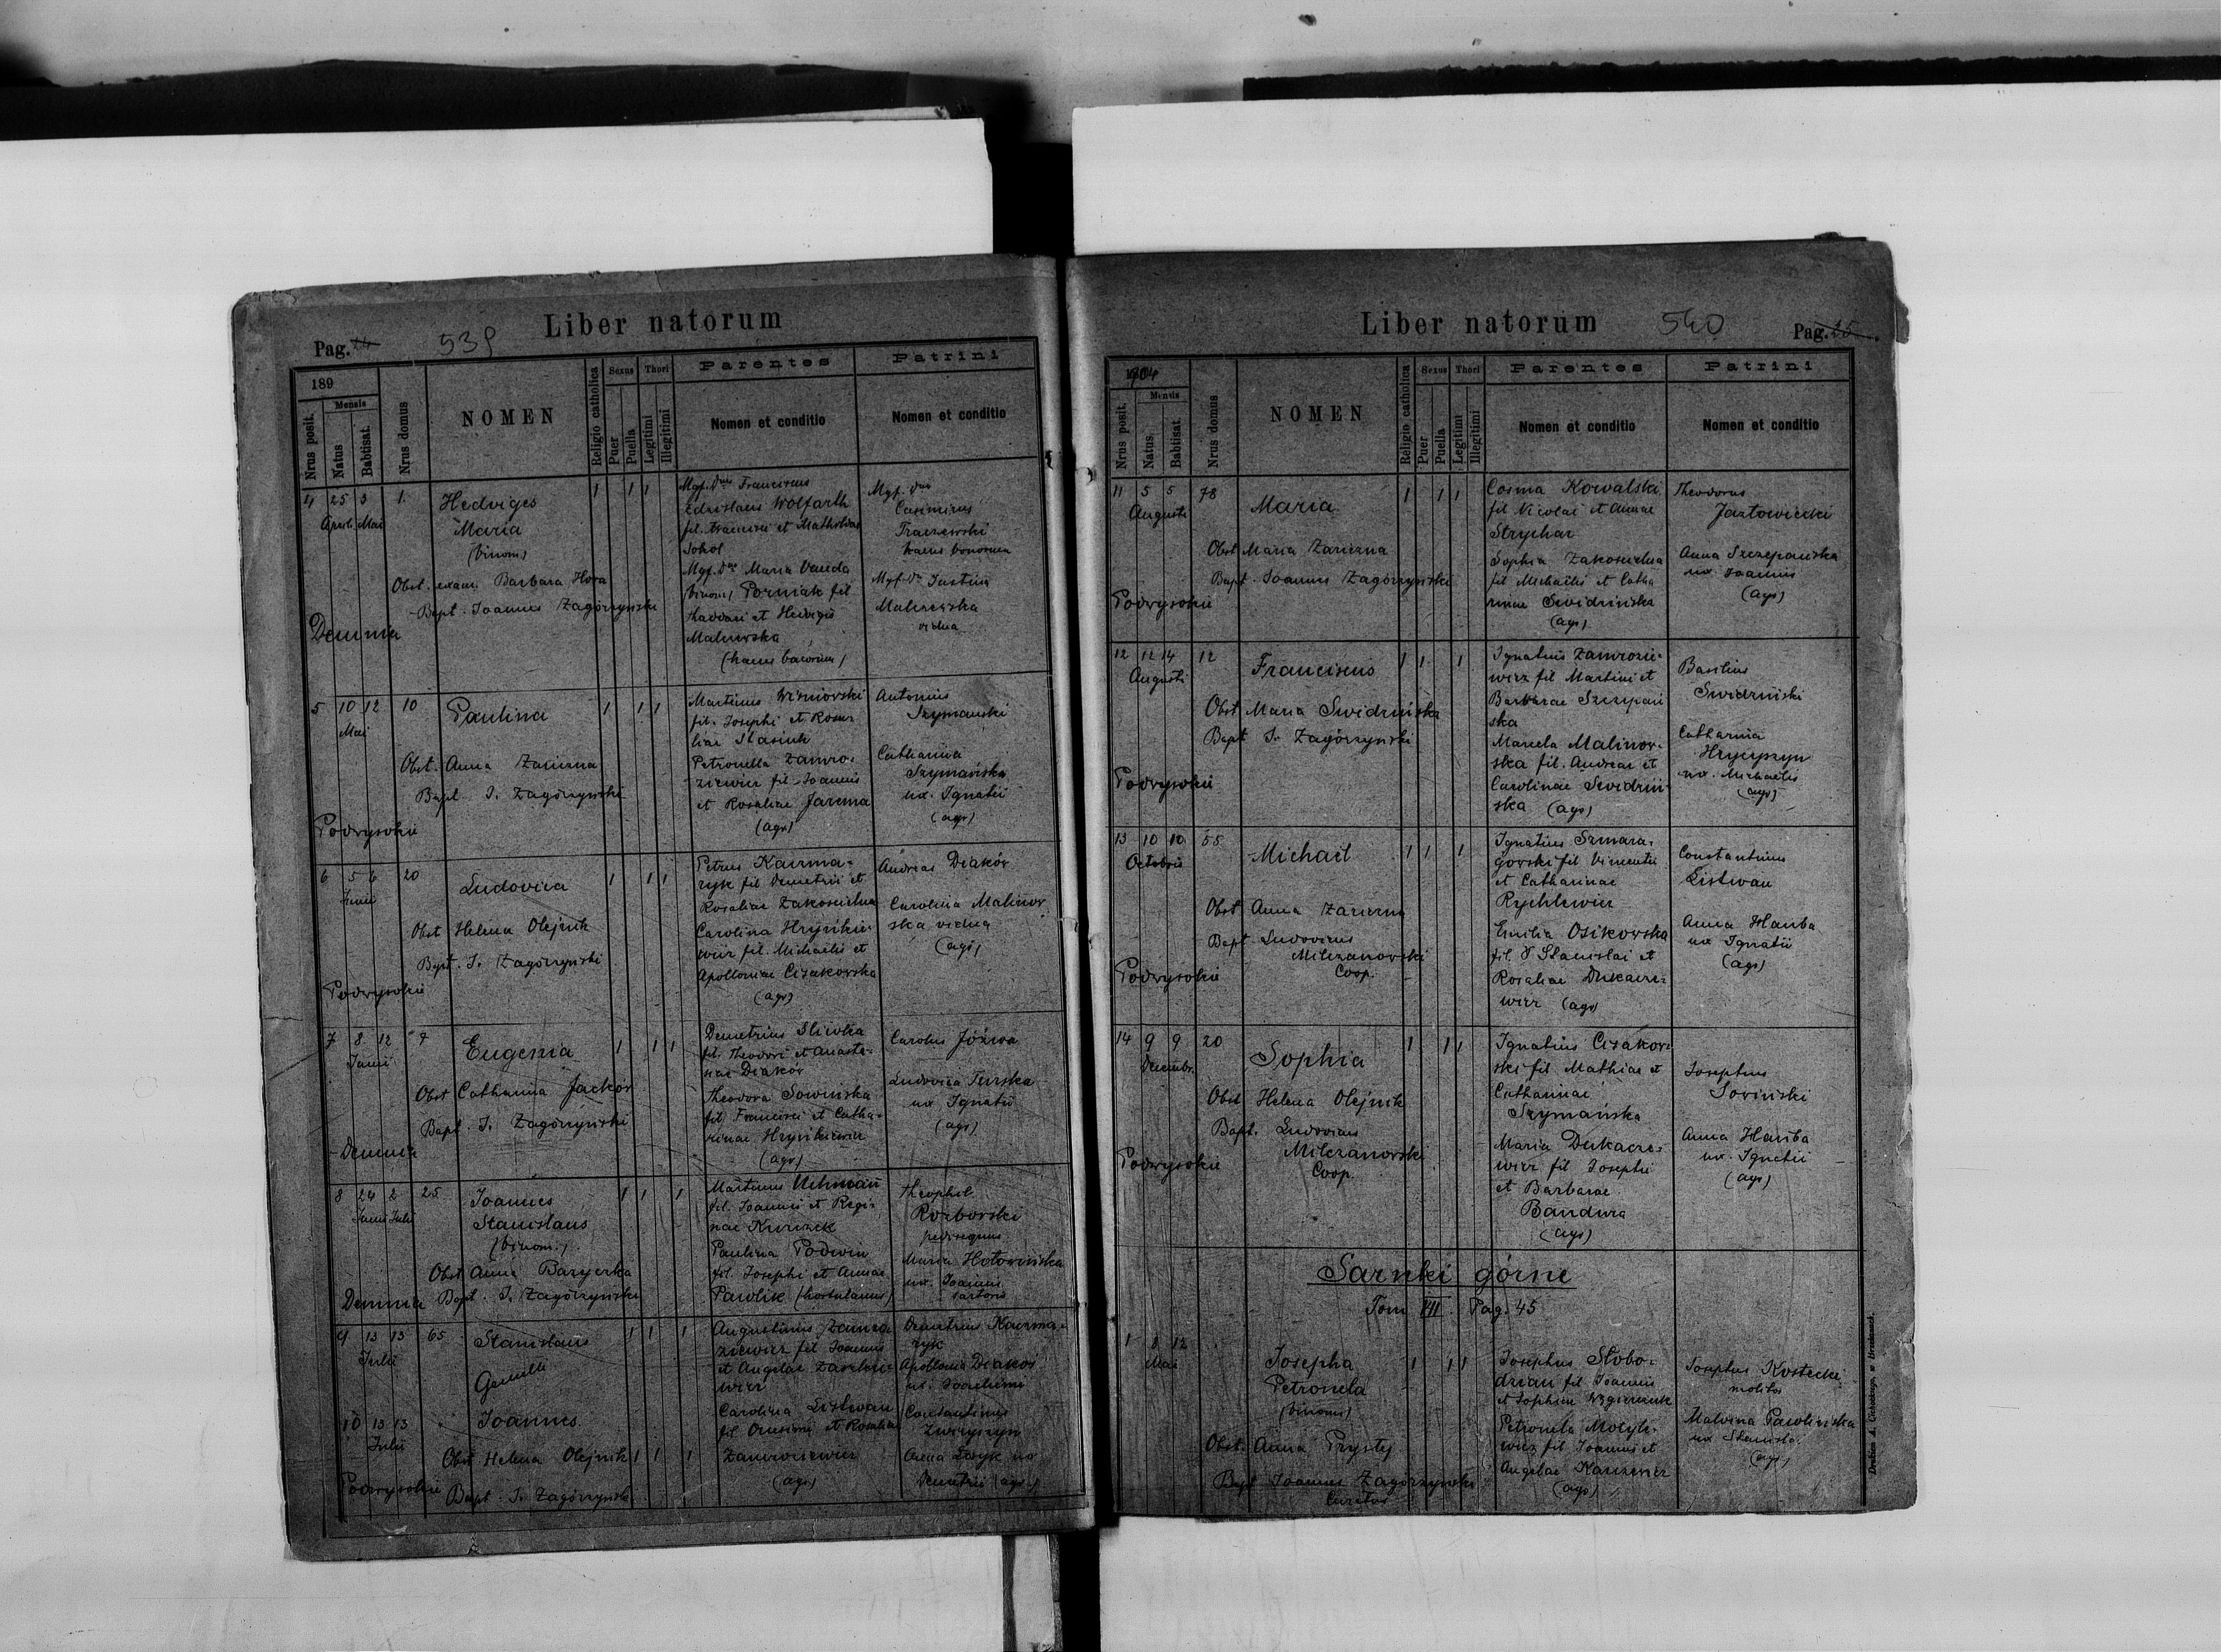 Liber natorum
Pag. 14 539
189
Nrus posit.
Mensis
Natus
Babtisat.
Nrus domus
NOMEN
Religio catholica
Sexus
Puer
Puella
Thori
Legitimi
Illegitimi
Parentes
Nomen et conditio
Patrini
Nomen et conditio
4 25 3 1.
April. Mai
Hedviges
Maria
(binom)
1 1 1
Obst. exam. Barbara Hora
Bapt. Joannes Zagórzyński
Demnia
Mgf. Dnus Franciscus
Zdzislaus Wolfarth
fil. Francisci et Mathildae
Sokol
Mgf. Dna Maria Vanda
(binom) Porniak fil
Thaddaei et Hedvigis
Malewska
(haeres bonorum)
Mgf. Dnus
Casimirus
Traczewski
haeres bonorum
Mgf. Dna Justina
Malczewska
vidua
5 10 12 10
Mai
Paulina
1 1 1
Obst. Anna Zariczna
Bapt. J. Zagórzyński
Podwysokie
Martinus Wiśniovski
fil. Josephi et Rosa-
liae Stasiuk
Petronella Zamro-
ziewicz fil. Joannis
et Rosaliae Jarema
(agr)
Antonius
Szymański
Catharina
Szymańska
ux. Ignatii
(agr)
6 5 6 20
Junii
Ludovica
1 1 1
Obst Helena Olejnik
Bapt. J. Zagórzyński
Podwysokie
Petrus Kaczma-
ryk fil Demetrii et
Rosaliae Zakoscielna
Carolina Hryńkie-
wicz fil. Michaelis et
Apolloniae Cizakowska
(agr)
Andreas Deakór
Carolina Malinow
ska vidua
(agr)
7 8 12 7
Junii
Eugenia
1 1 1
Obst Catharina Jackór
Bapt. J. Zagórzyński
Demnia
Demetrius Sliwka
fil. Theodori et Anasta-
siae Deakór
Theodora Sowińska
fil Francisci et Catha-
rinae Hryńkiewicz
(agr)
Carolus Józwa
Ludovica Turska
ux Ignatii
(agr)
8 24 2 25
Junii Julii
Joannes
Stanislaus
(binom.)
1 1 1
Obst Anna Baryerka
Bapt. J. Zagórzyński
Demnia
Martinus Uchman
fil. Joannis et Regi-
nae
Paulina Podwin
fil. Josephi et Annae
Pawlik (hortulanus)
Theophil
Rozborski
pedisequus
Maria Hołowińska
ux. Joannis
sartoris
9 13 13 65
Julii
Stanislaus
1 1 1
Gemelli
10 13 13 "
Julii
Joannes
Obst Helena Olejnik 1 1 1
Bapt. J. Zagórzyński
Podwysokie
Augustinus Zamro-
ziewicz fil Joannis
et Angelae
wicz
Carolina Listwan
fil. Onesimi et Rosaliae
Zamroziewicz
(agr)
Demetrius Kaczma-
ryk
Apollonia Deakór
ux. Joachimi
Constantinus
Anna ux
Demetrii (agr.)
Liber natorum
540 Pag. 15
1904
Nrus posit.
Mensis
Natus
Babtisat.
Nrus domus
NOMEN
Religio catholica
Sexus
Puer
Puella
Thori
Legitimi
Illegitimi
Parentes
Nomen et conditio
Patrini
Nomen et conditio
11 5 5 78
Augusti
Maria
1 1 1
Obst Maria Zariczna
Bapt. Joannes Zagórzyński
Podwysokie
Cosma Kowalski
fil Nicolai et Annae
Strychar
Sophia Zakoscielna
fil Michaelis et Catha
rinae Swidzińska
(agr)
Theodorus
Jazłowiecki
Anna Szczepańska
ux Joannis
(agr)
12 12 14 12
Augusti
Franciscus
1 1 1
Obst Maria Swidzińska
Bapt J. Zagórzyński
Podwysokie
Ignatius Zamrozie-
wicz fil Martini et
Barbarae Szczepań
ska
Marcela Malinow-
ska fil. Andreae et
Carolinae Swidziń-
ska (agr)
Basilius
Swidziński
Catharina
Hrycyszyn
ux. Michaelis
(agr)
13 10 10 55
Octobris
Michaël
1 1 1
Obst Anna Zariczna
Bapt Ludovicus
Milczanowski
Coop.
Podwysokie
Ignatius Szmara-
gowski fil Vincentii
et Catharinae
Rychlewicz
Emilia Osikowska
fil. Stanislai et
Rosaliae Dukacze-
wicz (agr)
Constantinus
Listwan
Anna Hańba
ux Ignatii
(agr)
14 9 9 20
Decembr.
Sophia
1 1 1
Obst Helena Olejnik
Bapt. Ludovicus
Milczanowski
Coop.
Podwysokie
Ignatius Cizakow
ski fil Mathiae et
Catharinae
Szymańska
Maria Dukacze-
wicz fil Josephi
et Barbarae
Bandura
(agr)
Josephus
Soviński
Anna Hańba
ux. Ignatii
(agr)
Sarnki górne
Tom VII. Pag. 45
1 8 12
Mai
Josepha
Petronela
(binom)
1 1 1
Obst. Anna Prystej
Bapt Joannes Zagórzyński
Curatus
Josephus Słobo-
drian fil Joannis
et Sophiae
Petronela Motyle-
wicz fil Joannis et
Angelae
(agr)
Josephus Kostecki
molitor
Malvina Pawlińska
ux Stanislai
(agr)